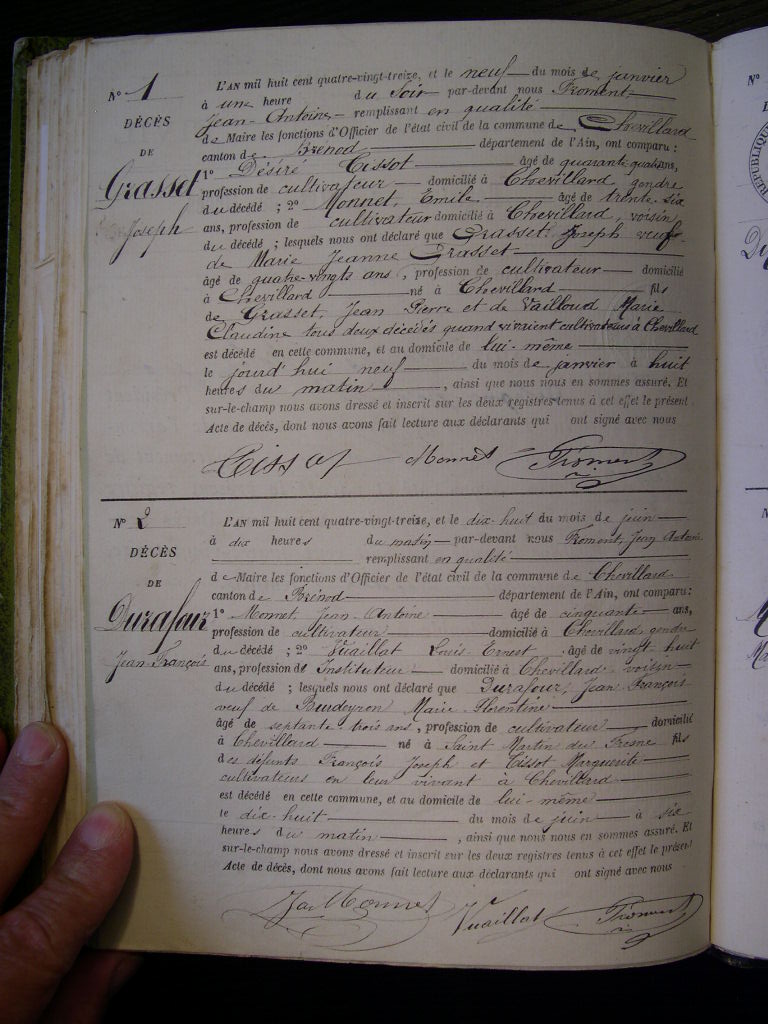 N° 1
DÉCÈS
DE
Grasset
Joseph
L'AN mil huit cent quatre-vingt-treize, et le neuf du mois de janvier
à une heure du soir par-devant nous Froment
Jean-Antoine remplissant en qualité
de Maire les fonctions d'Officier de l'état civil de la commune de Chevillard
canton de Brénod département de l'Ain, ont comparu :
1° Désiré Tissot âgé de quarante quatre ans,
profession de cultivateur domicilié à Chevillard, gendre
du décédé ; 2° Monnet, Emile âgé de trente six
ans, profession de cultivateur domicilié à Chevillard, voisin
du décédé ; lesquels nous ont déclaré que Grasset Joseph veuf
de Marie Jeanne Grasset
âgé de quatre-vingts ans, profession de cultivateur domicilié
à Chevillard né à Chevillard fils
de Grasset, Jean Pierre et de Vailloud Marie
Claudine tous deux décédés quand vivaient cultivateurs à Chevillard
est décédé en cette commune, et au domicile de lui-même
le jourd'hui neuf du mois de janvier à huit
heures du matin, ainsi que nous nous en sommes assuré. Et
sur-le-champ nous avons dressé et inscrit sur les deux registres tenus à cet effet le présent
Acte de décès, dont nous avons fait lecture aux déclarants qui ont signé avec nous
Tissot Monnet Froment
N° 2
DÉCÈS
DE
Durafour
Jean-François
L'AN mil huit cent quatre-vingt-treize, et le dix-huit du mois de juin
à dix heures du matin par-devant nous Froment, Jean Antoine
remplissant en qualité
de Maire les fonctions d'Officier de l'état civil de la commune de Chevillard
canton de Brénod département de l'Ain, ont comparu :
1° Monnet, Jean-Antoine âgé de cinquante ans,
profession de cultivateur domicilié à Chevillard, gendre
du décédé ; 2° Vuaillat Louis Ernest âgé de vingt huit
ans, profession de Instituteur domicilié à Chevillard voisin
du décédé ; lesquels nous ont déclaré que Durafour, Jean François
veuf de Burdeyron Marie Florentine
âgé de septante-trois ans, profession de cultivateur domicilié
à Chevillard né à Saint Martin du Fresne fils
des défunts François Joseph et Tissot Marguerite
cultivateurs en leur vivant à Chevillard
est décédé en cette commune, et au domicile de lui-même
le dix-huit du mois de juin à six
heures du matin, ainsi que nous nous en sommes assuré. Et
sur-le-champ nous avons dressé et inscrit sur les deux registres tenus à cet effet le présent
Acte de décès, dont nous avons fait lecture aux déclarants qui ont signé avec nous
Ja Monnet Vuaillat Froment